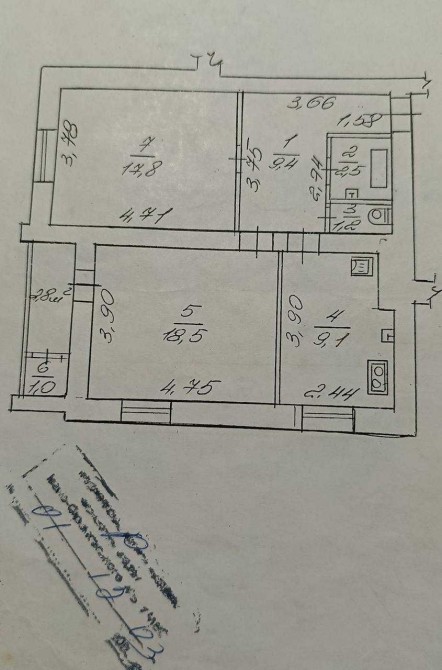 3,66
1,58
7
17,8
3,78
4,71
1
9,4
3,75
2,94
2
2,5
3
1,2
2,8м²
3,90
5
18,5
4,75
3,90
4
9,1
2,44
6
1,0